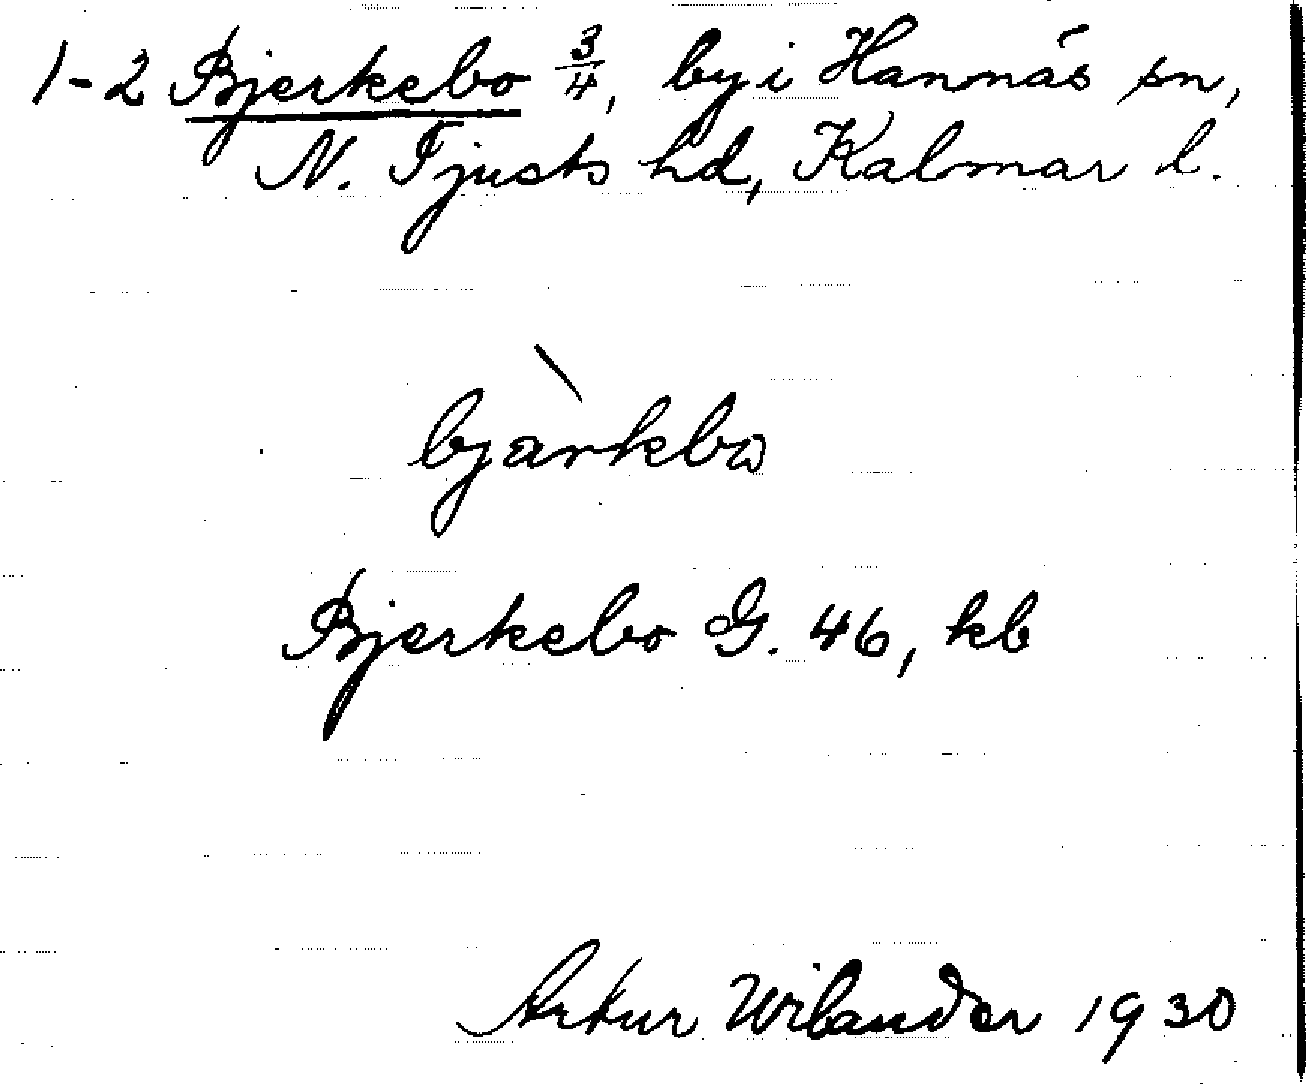 1-2 Bjerkebo 3/4, by i Hannäs sn,
N. Tjusts hd, Kalmar l.
bjàrkbω
Bjerkebo G. 46, kb
Artur Wilander 1930